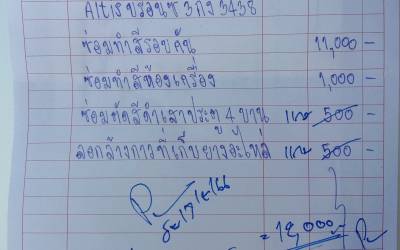 Altis บรอนซ์ 3กง 3438
ซ่อมทำสีรอบคัน 11,000 -
ซ่อมทำสีห้องเครื่อง 1,000 -
ซ่อมตัดสีดำเสาประตู 4 บาน แถม 500 -
ลอกล้างกาวที่เก็บยางอะไหล่ แถม 500 -
= 12,000 -